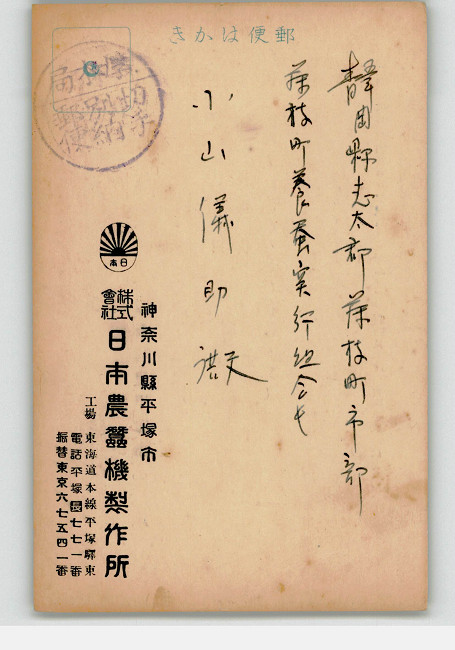 郵便はかき
靜岡縣志太郡藤枝町市部
藤枝町養蚕実行組合長
小山儀助殿
料金別納
郵便
日本
神奈川縣平塚市
株式會社日本農蠶機製作所
工場 東海道本線平塚驛東
電話平塚長七七一番
振替東京六七五四一番